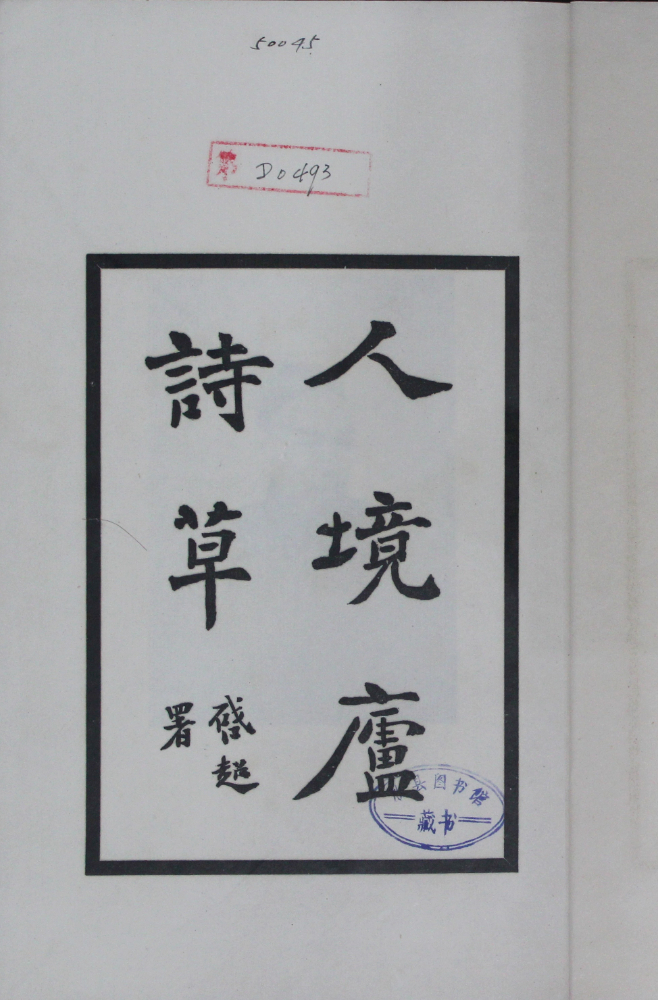 50045
D0493
人境廬
詩草
啓超
署
图书馆
藏书